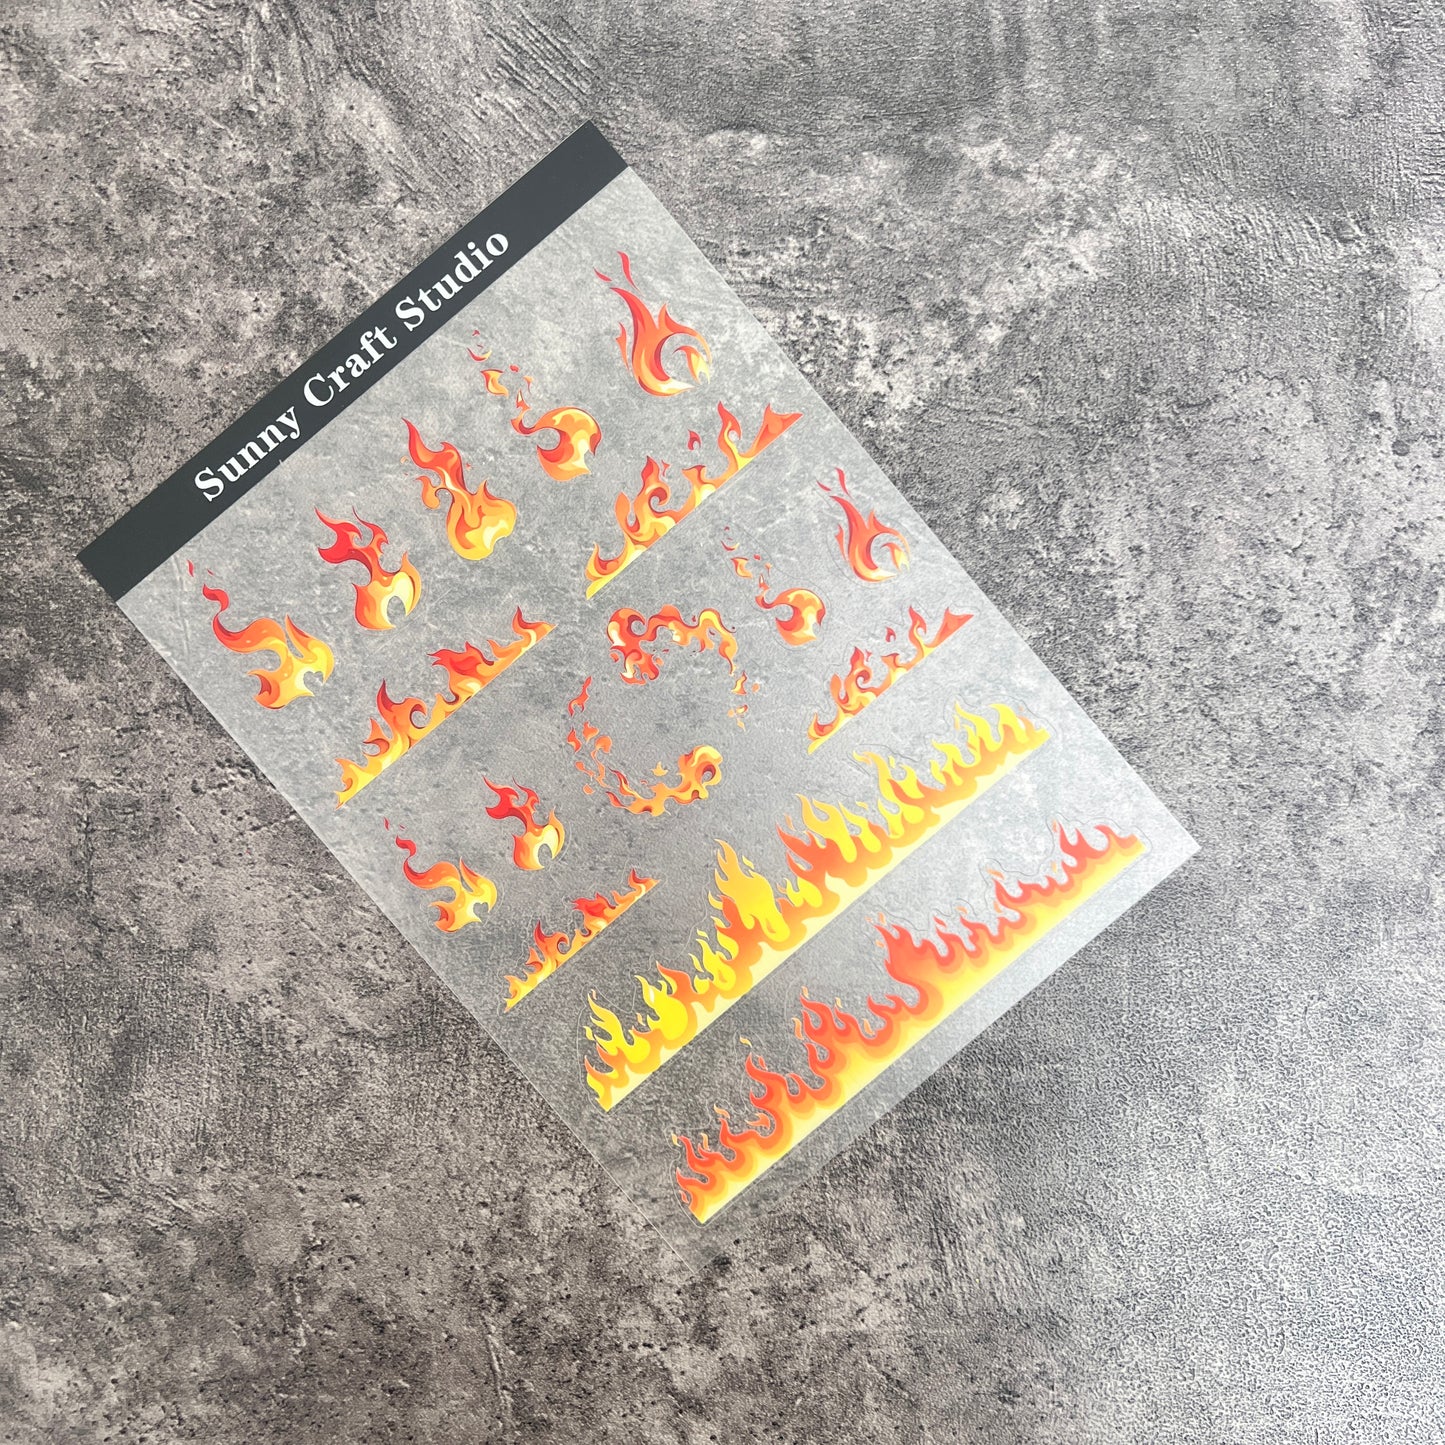 Sunny Craft Studio